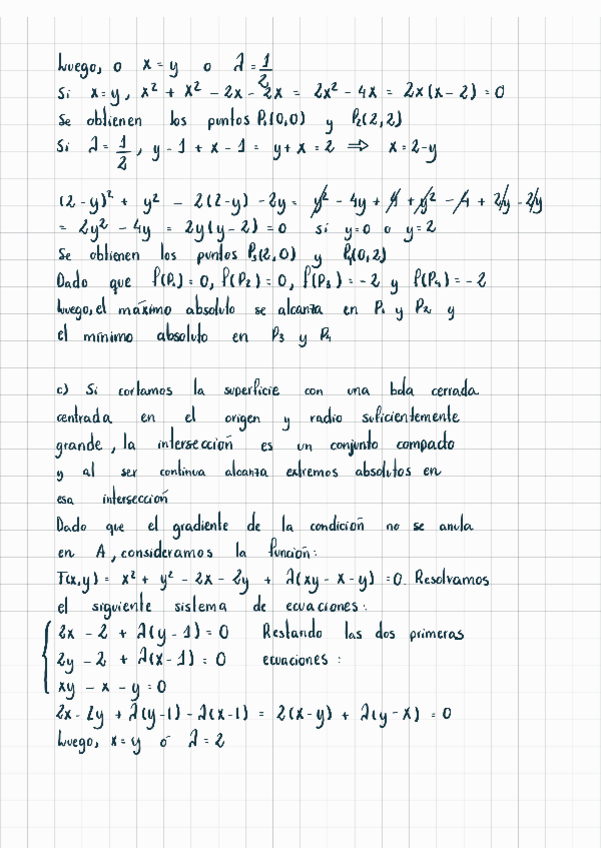 Luego, o x = y o λ = 1/2
Si x = y, x² + x² - 2x - 2x = 2x² - 4x = 2x(x-2) = 0
Se obtienen los puntos P₁(0,0) y P₂(2,2)
Si λ = 1/2, y - 1 + x - 1 = y + x = 2 ⇒ x = 2-y
(2-y)² + y² - 2(2-y) - 2y = y² - 4y + 4 + y² - 4 + 2y - 2y
= 2y² - 4y = 2y(y-2) = 0 si y=0 o y=2
Se obtienen los puntos P₃(2,0) y P₄(0,2)
Dado que f(P₁) = 0, f(P₂) = 0, f(P₃) = -2 y f(P₄) = -2
Luego, el máximo absoluto se alcanza en P₁ y P₂ y
el mínimo absoluto en P₃ y P₄
c) Si cortamos la superficie con una bola cerrada
centrada en el origen y radio suficientemente
grande, la intersección es un conjunto compacto
y al ser continua alcanza extremos absolutos en
esa intersección
Dado que el gradiente de la condición no se anula
en A, consideramos la función:
F(x,y) = x² + y² - 2x - 2y + λ(xy - x - y) = 0. Resolvamos
el siguiente sistema de ecuaciones:
2x - 2 + λ(y - 1) = 0 Restando las dos primeras
2y - 2 + λ(x - 1) = 0 ecuaciones:
xy - x - y = 0
2x - 2y + λ(y-1) - λ(x-1) = 2(x-y) + λ(y-x) = 0
Luego, x = y ó λ = 2